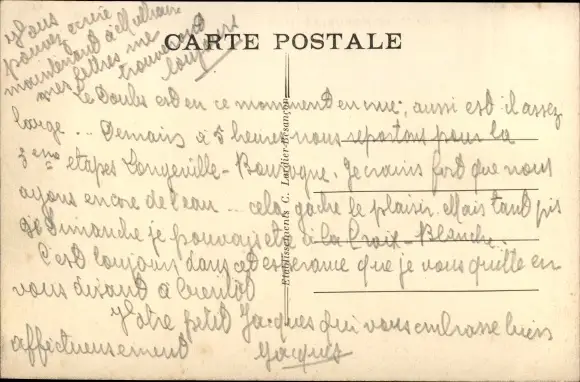 Vous
pouvez écrire
maintenant à Mulhouse
mes lettres me
trouveront
toujours
CARTE POSTALE
Le Doubs est en ce moment en crue, aussi est il assez
large... Demain à 5 heures nous repartons pour la
3ème étape Longeville - Bourogne. Je crains fort que nous
ayons encore de l'eau... cela gâche le plaisir. Mais tant pis
Dimanche je pouvais être à la Croix-Blanche...
C'est toujours dans cet espérance que je vous quitte en
vous disant à bientôt
Votre petit Jacques qui vous embrasse bien
affectueusement Jacques
Etablissements C. Lardier-Besançon